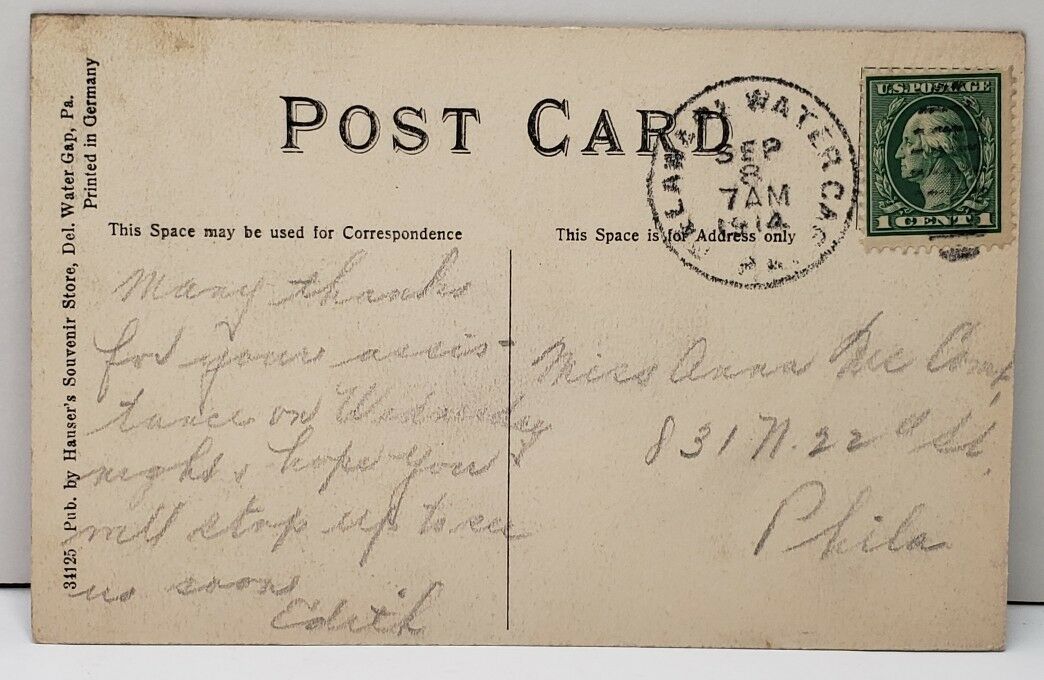 POST CARD
DELAWARE WATER GAP
SEP
8
7AM
1914
PA.
U.S. POSTAGE
1 CENT 1
34125 Pub. by Hauser's Souvenir Store, Del. Water Gap, Pa.
Printed in Germany
This Space may be used for Correspondence
This Space is for Address only
Many thanks
for your assis-
tance on Wednesday
night & hope you
will stop up to see
us soon
Edith
Miss Anna Mc Comt
831 N. 22d St.
Phila